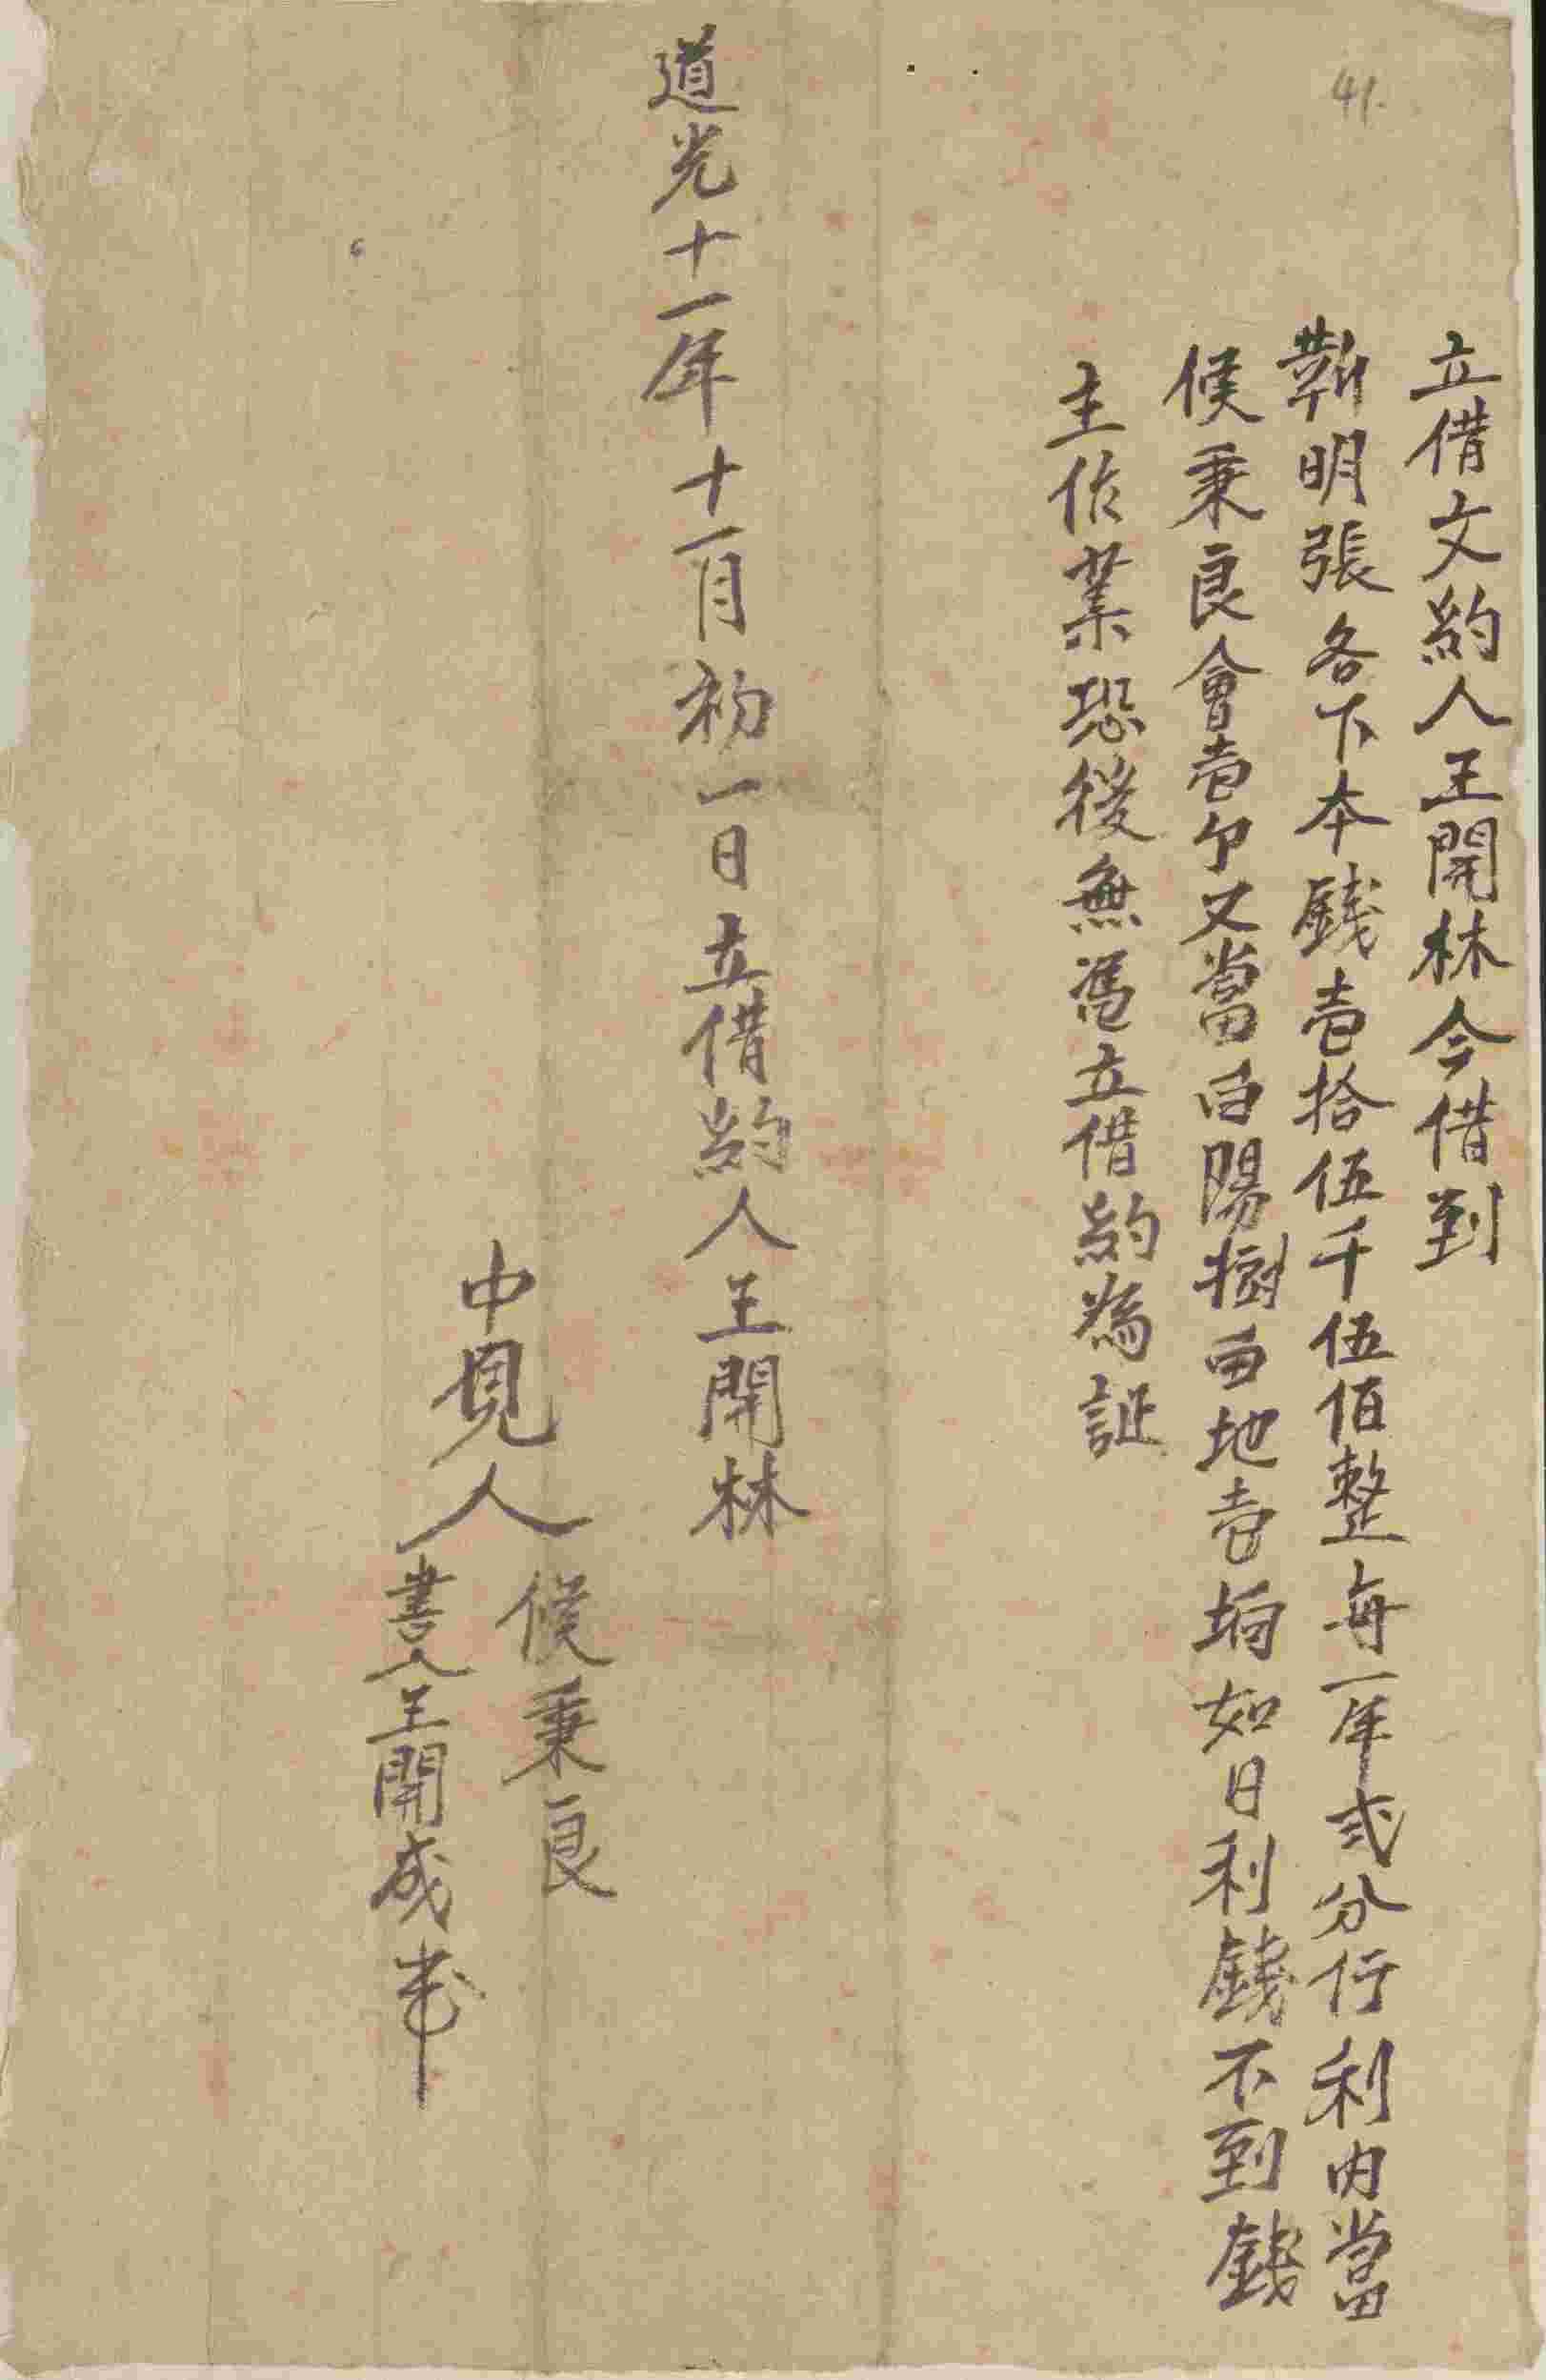 41.
立借文約人王開林今借到
靳明張名下本錢壹拾伍千伍佰整每一年弍分行利內當
候秉良會壹卩又當白陽樹白地壹垧如日利錢不到錢
主作業恐後無憑立借約為証
道光十一年十一月初一日立借約人王開林
中見人
候秉良
書人王開成